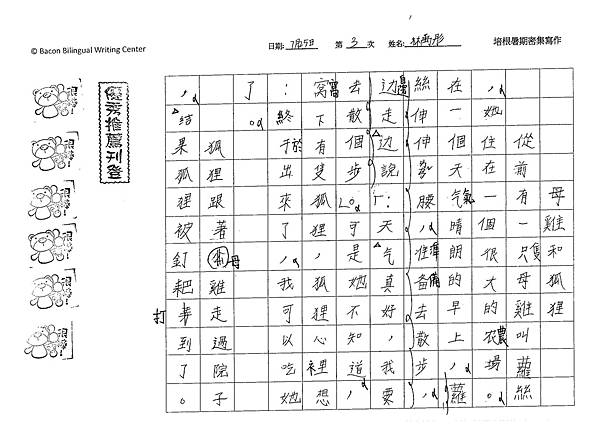 © Bacon Bilingual Writing Center
日期: 7月5日 第 3 次 姓名:
培根暑期密集寫作
優秀推薦刊登
母雞和狐狸
從前有一隻母雞叫蘿絲
，她住在一個很大的農場。
在一個天氣晴朗的早上，蘿
絲伸伸懶腰，準備去散步，
邊走边說：「天气真好，我要
去散個步。」可是她不知道，
窩下有隻狐狸，狐狸心裡想
：終於出來了，我可以吃她
了。
狐狸跟著母雞走過院子
，結果狐狸被釘耙打到了。